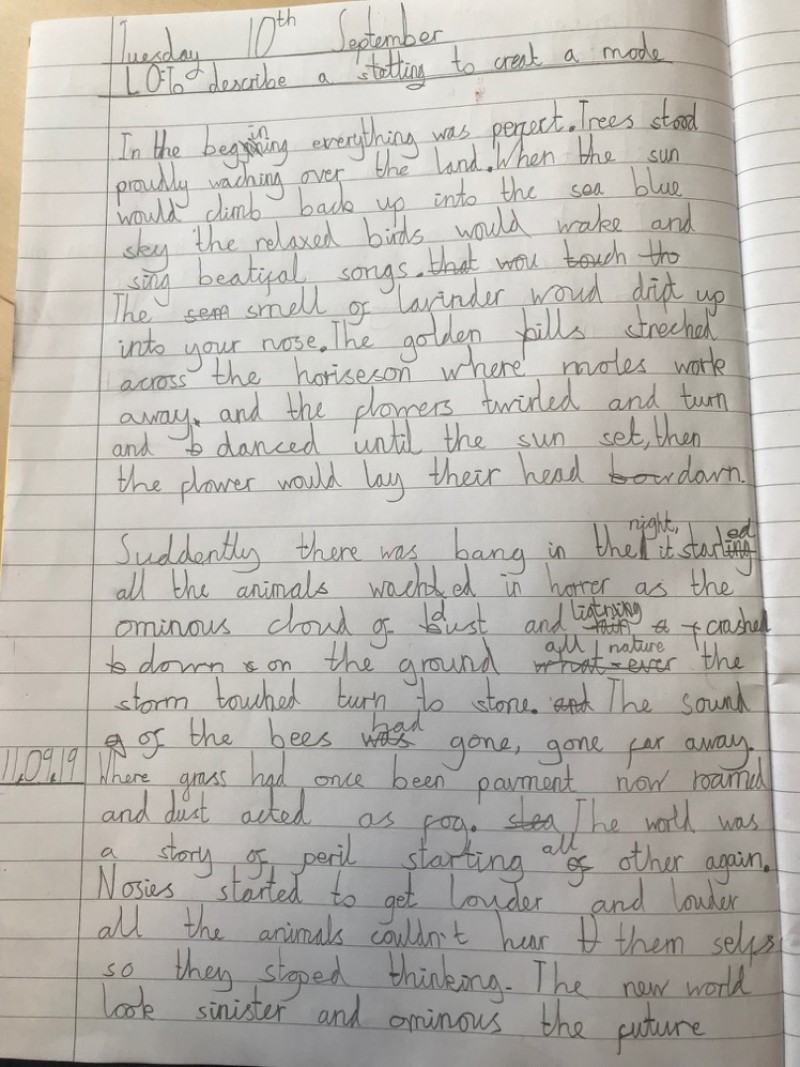 Tuesday 10th September
LO:To describe a statting to creat a mode
In the begining everything was perfect. Trees stood
proudly waching over the land. When the sun
would climb back up into the sea blue
sky the relaxed birds would wake and
sing beatifal songs. that wou touch tho
The sem smell of lavinder woud drift up
into your nose. The golden fills streched
across the horiseson where moles work
away, and the flowers twirled and turn
and b danced until the sun set, then
the flower would lay their head bow down.
Suddently there was bang in the night, it started
all the animals wachted in horrer as the
ominous cloud of dust and lightning crashed
down on the ground all nature what-ever the
storm touched turn to stone. and The sound
of the bees was had gone, gone far away.
11.09.19 Where grass had once been pavment now roamed
and dust acted as fog. The world was
a story of peril starting all of other again.
Nosies started to get louder and louder
all the animals couldn't hear them selfs
so they stoped thinking. The new world
look sinister and ominous the future